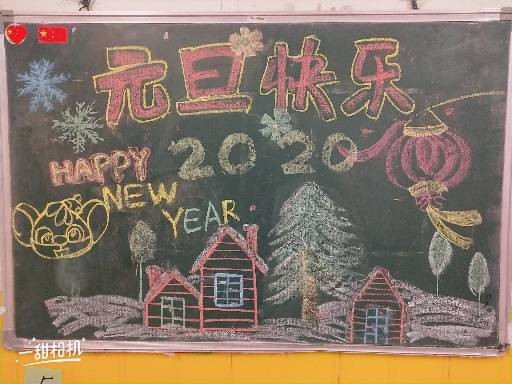 元旦快乐
2020
HAPPY
NEW
YEAR
一甜相机
5